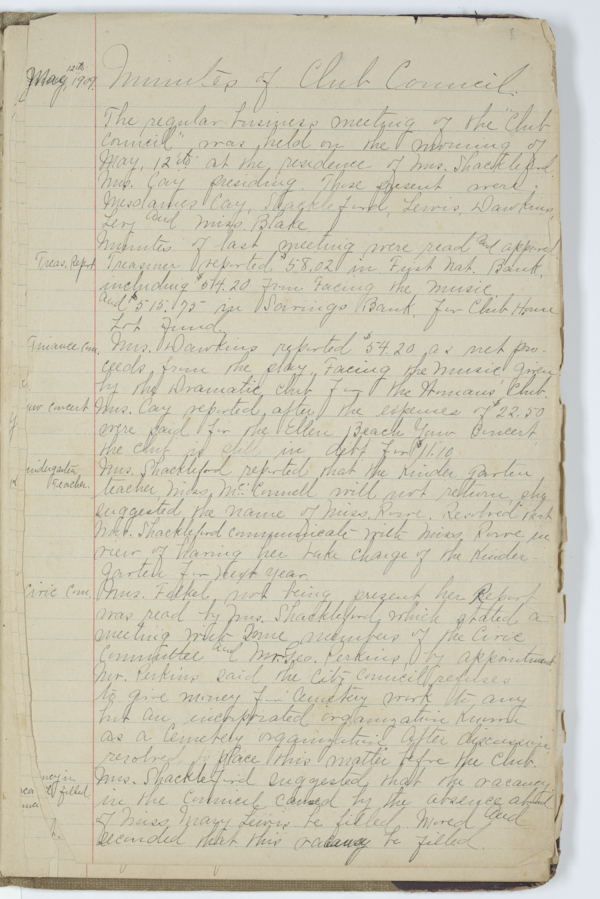 May 12th 1909.
Minutes of Club Council.
The regular business meeting of the "Club
Council" was held on the morning of
May, 12th at the residence of Mrs. Shackleford.
Mrs. Cay presiding. Those present were;
Mesdames Cay, Shackleford, Lewis, Dawkins,
Levy and Miss. Blake
Minutes of last meeting were read and approved
Treas. Report
Treasurer reported $58.02 in First Nat. Bank,
including $54.20 from Facing the Music,
and $515.75 in Savings Bank, for Club House
Lot Fund.
Finance Com.
Mrs. Dawkins reported $54.20 as net pro-
ceeds from the play, Facing the Music given
by the Dramatic club for the Womans' Club.
Yaw Concert
Mrs. Cay reported, after the expenses of $22.50
were paid for the Ellen Beach Yaw Concert
the club is still in debt for $11.10
Kindergarten
Teacher.
Mrs. Shackleford reported that the Kinder garten
teacher, Miss, McConnell will not return, she
suggested the name of Miss. Rowe. Resolved that
Mrs. Shackleford communicate with Miss, Rowe in
view of having her take charge of the Kinder-
garten for next year.
Civic Com.
Mrs. not being present her Report
was read by Mrs. Shackleford, which stated a
meeting with some members of the Civic
Committee and Mr. Geo. Perkins, by appointment
Mr. Perkins said the City Council refuses
to give money for Cemetery work to any
but an incorporated organization known
as a Cemetery organization. After discussion,
resolved to place this matter before the Club.
filled
Mrs. Shackleford suggested that the vacancy
in the Council caused by the absence
of Miss, Mary Lewis be filled. Moved and
seconded that this vacancy be filled.